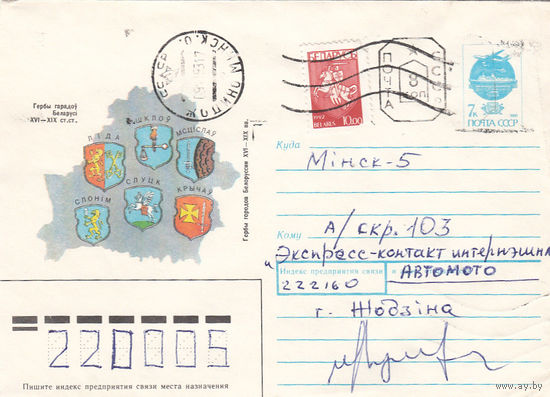 Гербы гарадоў
Беларусі
XVI — XIX ст.ст.
ЛІДА
ШКЛОЎ
МСЦІСЛАЎ
СЛОНІМ
СЛУЦК
КРЫЧАЎ
Гербы городов Белоруссии XVI — XIX вв.
БЕЛАРУСЬ
1992
BELARUS 10.00
ПОЧТА
8
коп
7к
ПОЧТА СССР
Куда
Мінск-5
Кому
А/скр. 103
"Экспресс-контакт интернэшнл
Индекс предприятия связи
АВТОМОТО
222160
г. Жодзіна
220005
Пишите индекс предприятия связи места назначения
www.ay.by